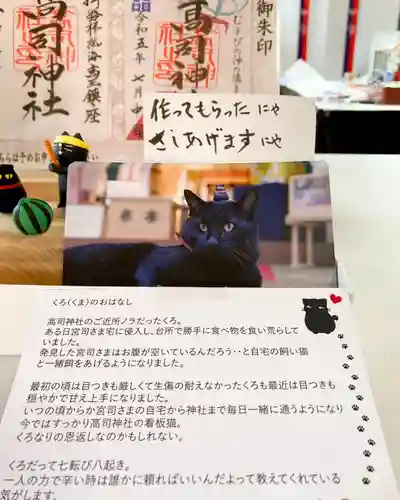 御朱印
高司神社
高司神社
令和五年七月
作ってもらったにゃ
さしあげますにゃ
くろ(くま)のおはなし
高司神社のご近所ノラだったくろ。
ある日宮司さま宅に侵入し、台所で勝手に食べ物を食い荒らして
いました。
発見した宮司さまはお腹が空いているんだろう・・と自宅の飼い猫
と一緒餌をあげるようになりました。
最初の頃は目つきも厳しくて生傷の耐えなかったくろも最近は目つきも
穏やかで甘え上手になりました。
いつの頃からか宮司さまの自宅から神社まで毎日一緒に通うようになり
今ではすっかり高司神社の看板猫。
くろなりの恩返しなのかもしれない。
くろだって七転び八起き。
一人の力で辛い時は誰かに頼ればいいんだよって教えてくれている
気がします。